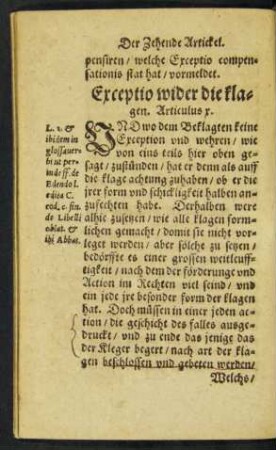 Der Zehende Artickel.
pensiren / welche Exceptio compen-
sationis stat hat / vormeldet.
Exceptio wider die kla-
gen. Articulus x.
L. 1. &
ibidem in
glossa uer-
bi ut per-
mde ff. de
Edendo l.
edita C.
eod. c. fin.
de Libelli
oblat. &
ibi Abbat.
VNd wo dem Beklagten keine
Exception vnd wehren / wie
von eins teils hier oben ge-
sagt / zustünden / hat er denn als auff
die klage achtung zuhaben / ob er die
jrer form vnd schickligkeit halben an-
zufechten habe. Derhalben were
alhie zuseyen / wie alle klagen form-
lichen gemacht / domit sie nicht vor-
leget werden / aber sölche zu seyen /
bedörffte es einer grossen weitleuff-
tigkeit / nach dem der förderunge vnd
Action im Rechten viel seind / vnd
ein jede jre besonder form der klagen
hat. Doch müssen in einer jeden ac-
tion / die geschicht des falles ausge-
druckt / vnd zu ende das jenige das
der Kleger begert / nach art der kla-
gen beschlossen vnd gebeten werden /
Welchs /